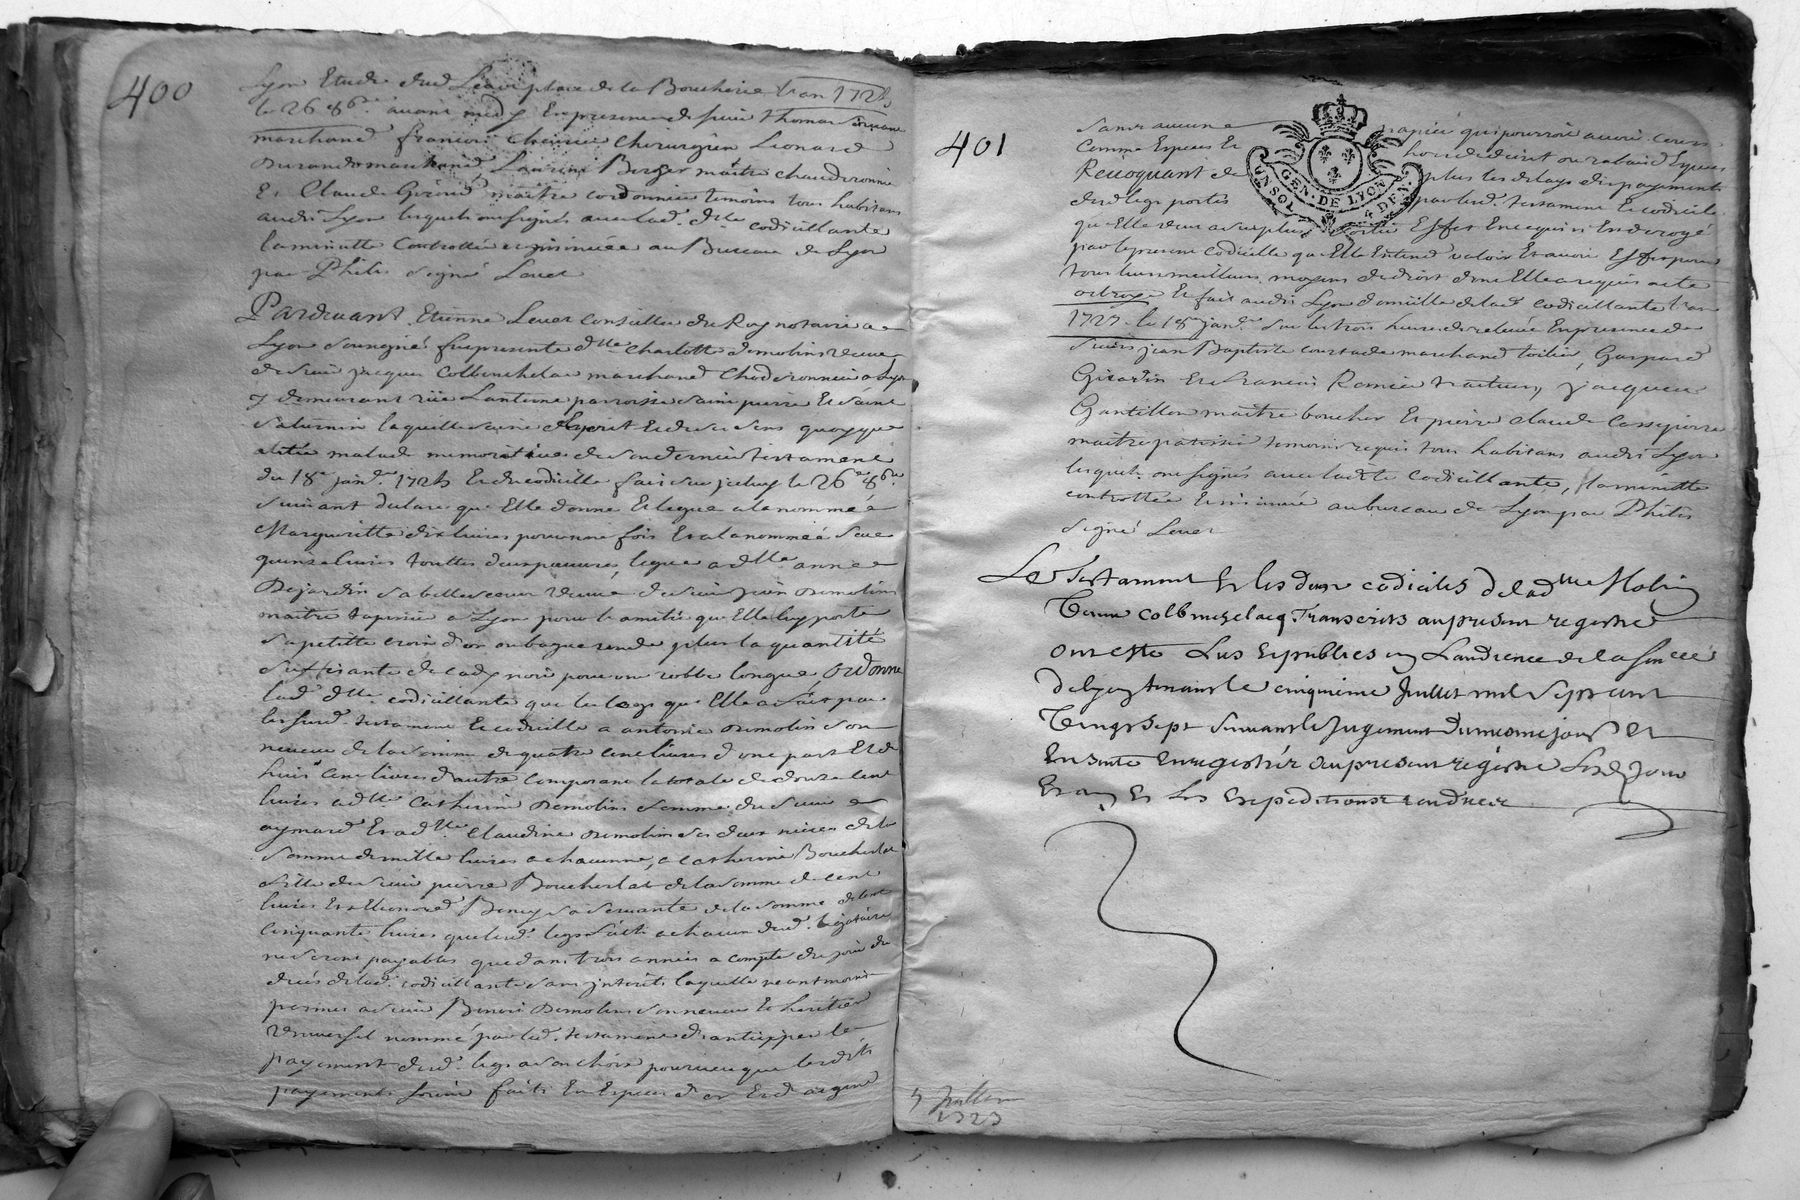 400
Lyon Etude dud Leuet place de la Boucherie L'an 1725
le 26 8bre avant midy En presence de sieur Thomas
marchand francois Cherier Chirurgien Leonard
Durand marchand, Laurent Berger maitre chauderonnier
Et Claude Girind maitre cordonnier temoins tous habitans
audit Lyon lesquels ont signé avec lad. dlle codicillante
la minutte Controllée et insinuée au Bureau de Lyon
par Philis signé Leuet
Pardevant Etienne Leuet Conseiller du Roy notaire a
Lyon sousigné fut presente dlle Charlotte Demolins veuve
de sieur jacques Colbenchelac marchand Choderonnier a Lyon
y demeurant rüe Lanterne parroisse saint pierre Et saint
saturnin laquelle saine d'Esprit Et de ses sens quoyque
alitée malade memorative de son dernier testament
du 18e janv. 1725 Et du codicille fait sur jceluy le 26e 8bre
suivant declare que Elle donne Et legue a la nommée
Margueritte dix livres pour une fois Et a la nommée
quinze livres touttes deux, legue a dlle anne
Dejardin sa bellesoeur veuve de sieur Demolins
maitre tapissier a Lyon pour l'amitié que Elle luy porte
sa petitte croix d'or ou bague ronde plus la quantité
suffisante de noir pour une robbe longue, ordonne
lad. dlle codicillante que les legs que Elle a fait par
les susd. testament Et codicille a antoine Demolins son
neveu de la somme de quatre cent livres d'une part Et de
huit cent livres d'autre composant la totale de douze cent
livres a dlle Catherine Demolins femme du sieur
aymard Et a dlle Claudine Demolins ses deux nieces de la
somme de mille livres a chacunne, a Catherine Boucherlat
fille de sieur pierre Boucherlat de la somme de cent
livres Et a Eleonord Beney sa servante de la somme de cent
cinquante livres que lesd. legs faits a chacun desd. legataires
ne seront payables que dans trois années a compter du jour du
decés de lad. codicillante sans jnterêts laquelle neantmoins
permet a sieur Benoit Demolins son neveu Et heritier
universel nommé par led. testament d'anticipper le
payement desd. legs a son choix pourveu que lesdits
payements soient faits En Especes d'or Et d'argent
401
sans aucun papier qui pourroit avoir cours
comme Especes Et
Revoquant
desd legs portés par lesd. testament Et codicile
que Elle veut a sorti Effet En ce qui n'est derogé
par le present codicille que Elle Entend valoir Et avoir Effet pour
tous leurs meilleurs moyens de droit dont Elle a requis acte
octroyé Et fait audit Lyon domicille de lad. codicillante l'an
1727 le 18e janv. sur les trois heures de relevée En presence de
sieurs jean Baptiste courtade marchand toilier, Gaspard
Girardin Et francois Romier traiteurs, jacques
Gantillon maitre boucher Et pierre claude Cassepierre
maitre patissier temoins requis tous habitans audit Lyon
lesquels ont signés avec laditte codicillante, la minutte
controllée Et insinuée au bureau de Lyon par Philis
signé Leuet
Le Testament Et les deux codiciles de lad lle Molin
Veuve colbenchelacq Transcrits au present registre
ont esté Lus Et publiés en L'audience de la senecée
de Lyon tenant le cinquieme Juillet mil sept cent
Vingt sept suivant le Jugement du mesme jour Et
En suitte Enregistrés au present registre Lesd Jour
Et an Et les Expeditions rendues
GEN. DE LYON
4 DEN.
5 Juillet
1727